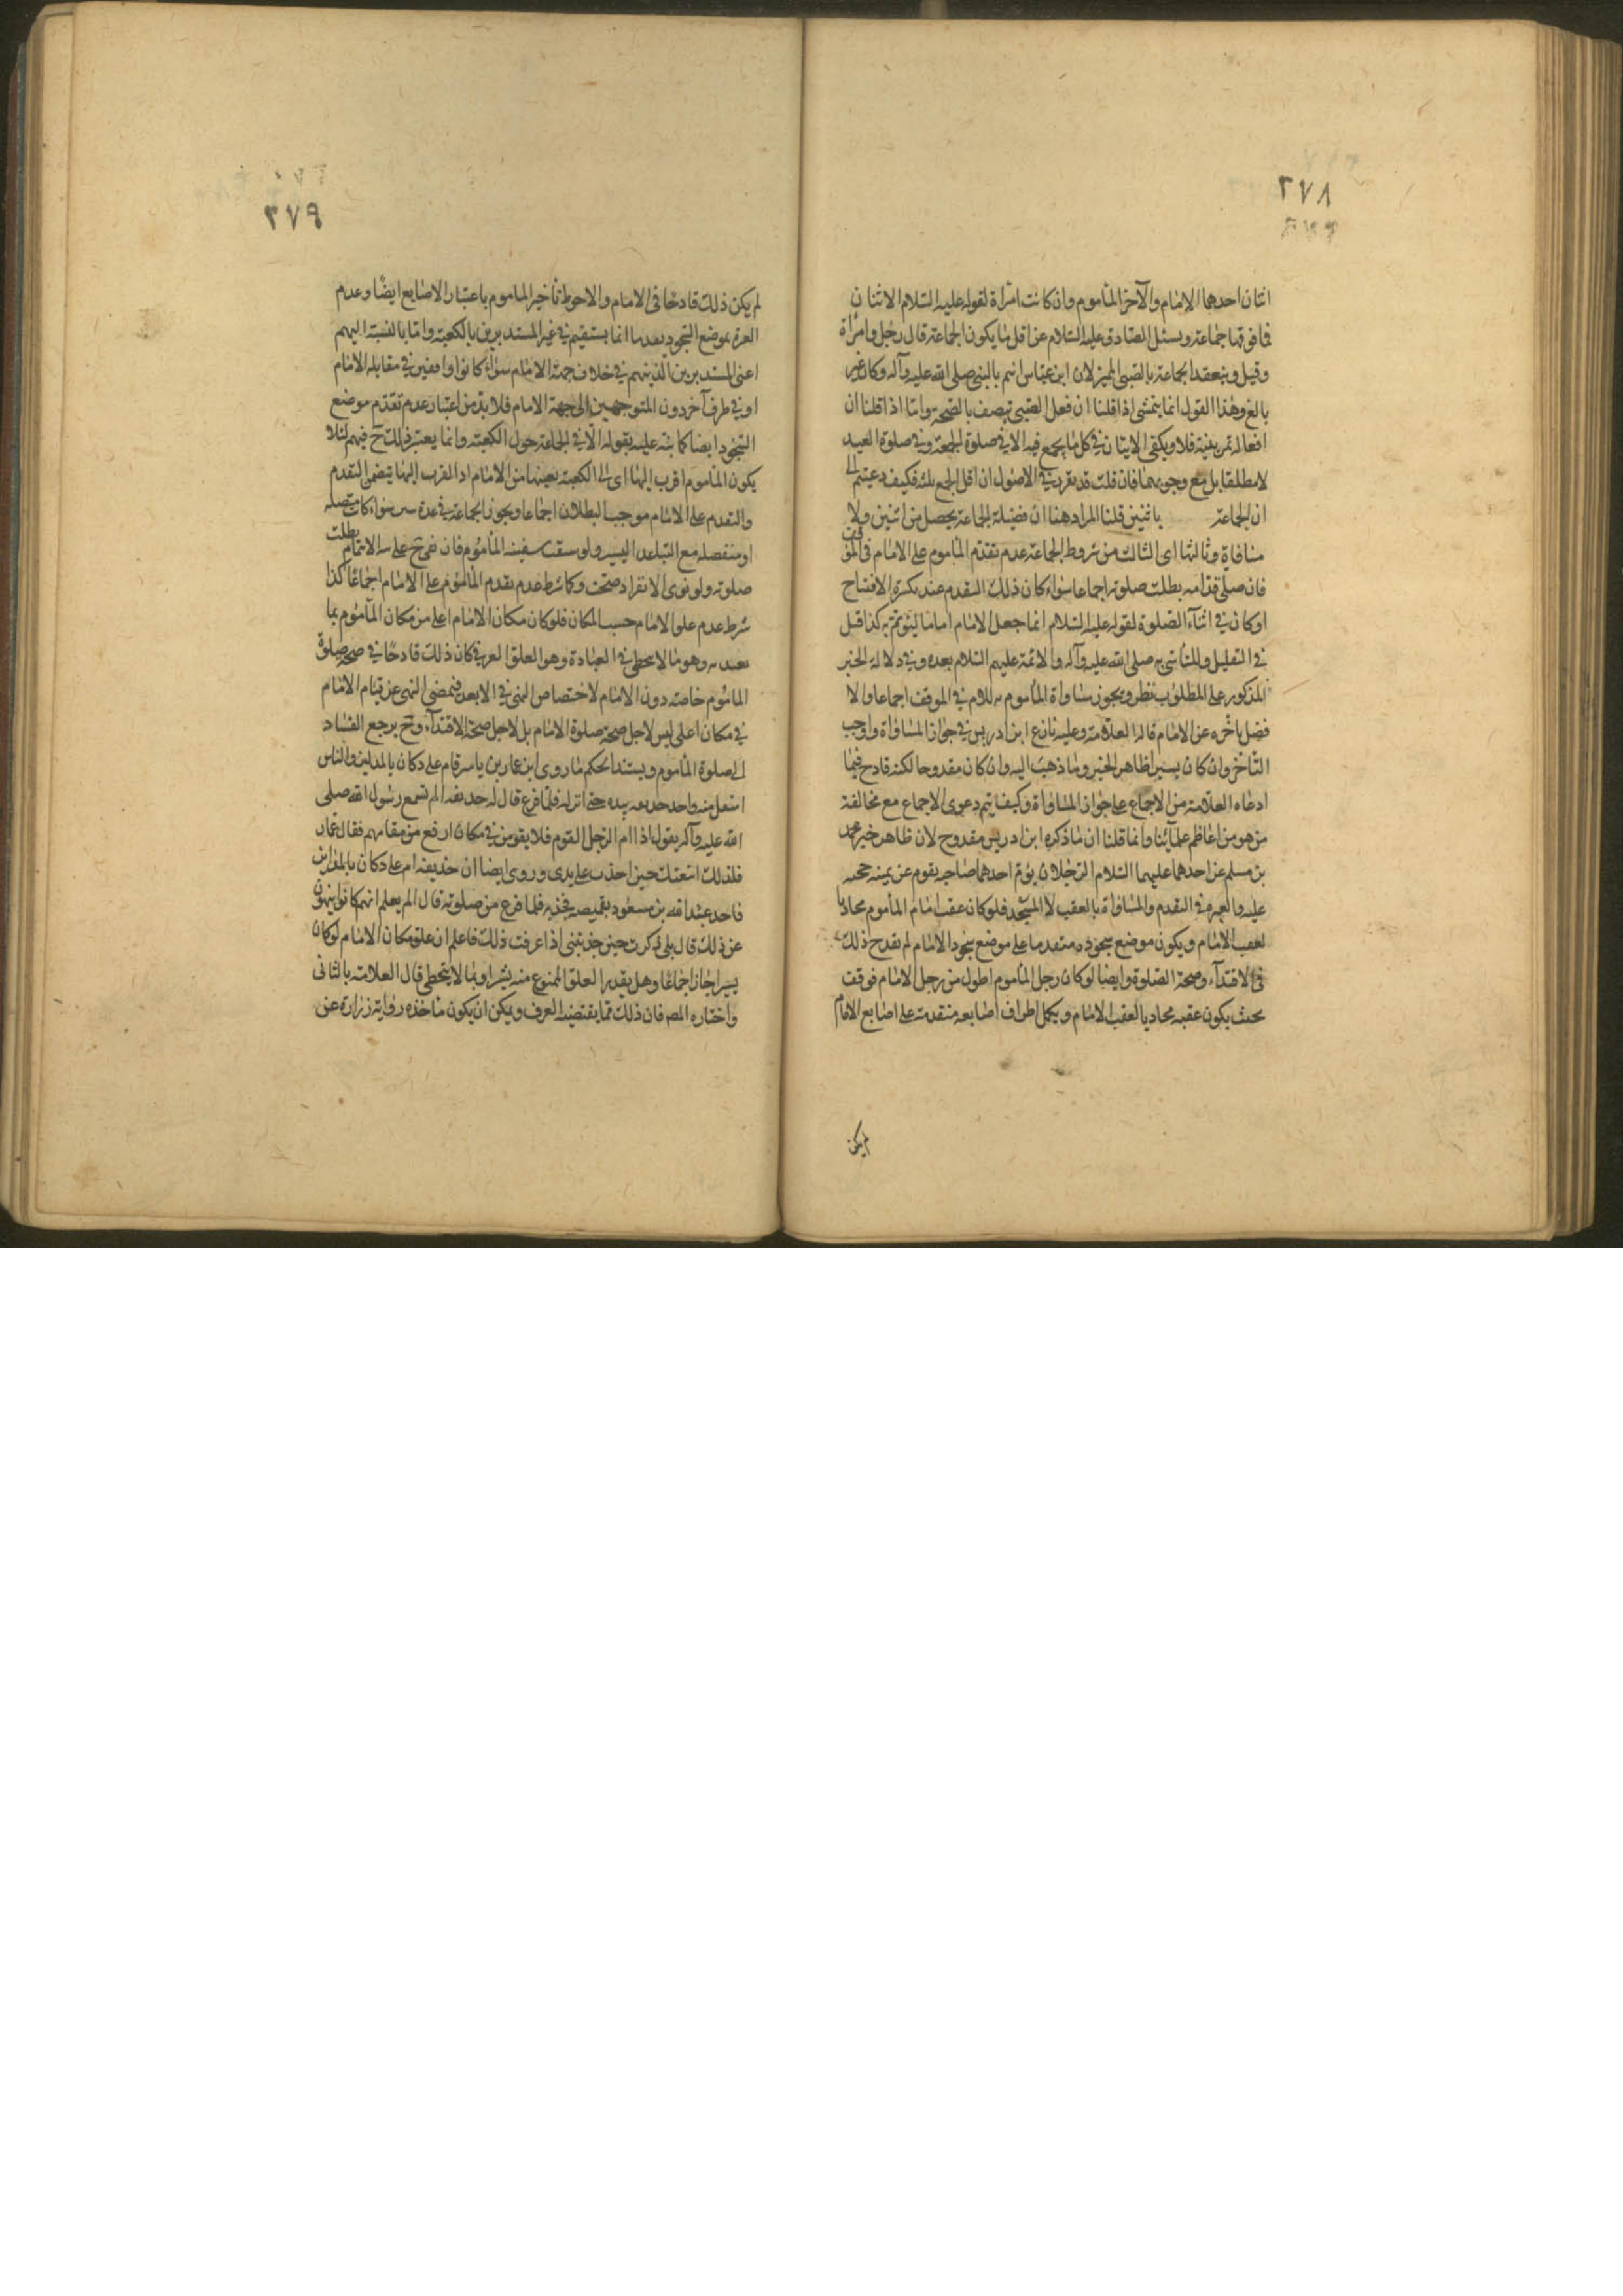 ٢٧٨
اثنان احدهما الامام والآخر المأموم وان كانت امرأة لقوله عليه السلام الاثنان
فما فوقها جماعة ويسئل الصادق عليه السلام عن اقل ما يكون الجماعة قال رجل وامرأة
وقيل وينعقد الجماعة بالصبي المميز لان ابن عباس ائتم بالنبي صلى الله عليه وآله وكان غير
بالغ وهذا القول انما يتمشى اذا قلنا ان فعل الصبي يتصف بالصحة واما اذا قلنا ان
افعاله تمرينية فلا ويكفى الاثنان في كل ما يجمع فيه الا في صلوة الجمعة وفي صلوة العيد
لا مطلقا بل مع وجوبهما فان قلت قد تقرر في الاصول ان اقل الجمع ثلثة فكيف دعيتم
ان الجماعة باثنين قلنا المراد هنا ان فضيلة الجماعة يحصل من اثنين ولا
منافاة وثالثها اى الثالث من شروط الجماعة عدم تقدم المأموم على الامام في الموقف
فان صلى قدامه بطلت صلوته اجماعا سواء كان ذلك التقدم عند تكبيرة الافتتاح
او كان في اثناء الصلوة لقوله عليه السلام انما جعل الامام اماما ليؤتم به كذا قيل
في التعليل وللتأسي به صلى الله عليه وآله والائمة عليهم السلام بعده وفي دلالة الخبر
المذكور على المطلوب نظر ويجوز مساواة المأموم للامام في الموقف اجماعا والا
فضل تأخره عن الامام قاله العلامة وعليه نازع ابن ادريس في جواز المساواة واوجب
التأخر وان كان يسيرا ظاهر الخبر وما ذهب اليه وان كان مقدوحا لكنه قادح فيما
ادعاه العلامة من الاجماع على جواز المساواة وكيف يتم دعوى الاجماع مع مخالفة
من هو من اعاظم علمائنا وانما قلنا ان ما ذكره ابن ادريس مقدوح لان ظاهر خبر محمد
بن مسلم عن احدهما عليهما السلام الرجلان يؤم احدهما صاحبه يقوم عن يمينه حجة
عليه والعبرة في التقدم والمساواة بالعقب لا المسجد فلو كان عقب امام المأموم محاذيا
لعقب الامام ويكون موضع سجوده متقدما على موضع سجود الامام لم يقدح ذلك
في الاقتداء وصحة الصلوة وايضا لو كان رجل المأموم اطول من رجل الامام فوقف
بحيث يكون عقبه محاذيا لعقب الامام ويكمل اطراف اصابعه متقدمة على اصابع الامام
لم يكن
٢٧٩
لم يكن ذلك قادحا في الامام والاحوط تأخير المأموم باعتبار الاصابع ايضا وعدم
العبرة بموضع السجود انما يستقيم في غير المستديرين بالكعبة واما بالنسبة اليهم
اعنى المستديرين الذين هم في خلاف جهة الامام سواء كانوا واقفين في مقابلة الامام
او في طرف آخر دون المتوجهين الى جهة الامام فلا بد من اعتبار عدم تقدم موضع
السجود ايضا كما نبه عليه بقوله الا في الجماعة حول الكعبة وانما يعتبر ذلك ح فيهم لئلا
يكون المأموم اقرب اليها اى الى الكعبة بعينها من الامام اذ القرب اليها يتضمن التقدم
والتقدم على الامام موجب البطلان اجماعا ويجوز الجماعة في عدة سفن سواء كانت متصلة
او منفصلة مع التباعد اليسير ولو سبقت سفينة المأموم فان نوى ح على الايتمام بطلت
صلوته ولو نوى الانفراد صحت وكما شرط عدم تقدم المأموم على الامام اجماعا كذا
شرط عدم علو الامام حسب المكان فلو كان مكان الامام اعلى من مكان المأموم بما
يعتد به وهو ما لا يتخطى في العبادة وهو العلو العرفي كان ذلك قادحا في صحة صلوة
المأموم خاصة دون الامام لاختصاص النهي في الابعد فمقتضى النهي عن قيام الامام
في مكان اعلى ليس لاجل صحة صلوة الامام بل لاجل صحة الاقتداء وح يرجع الفساد
الى صلوة المأموم ويستند الحكم ما روى ابن عمار بن ياسر قام على دكان بالمداين والناس
اسفل منه واخذ حذيفة بيده حتى انزله فلما فرغ قال له حذيفة الم تسمع رسول الله صلى
الله عليه وآله يقول اذا ام الرجل القوم فلا يقومن في مكان ارفع من مقامهم فقال عمار
فلذلك اتبعتك حين اخذت على يدي وروى ايضا ان حذيفة ام على دكان بالمداين
فاخذ عبد الله بن مسعود بقميصه فجذبه فلما فرغ من صلوته قال الم يعلم انهم كانوا ينهون
عن ذلك قال بلى ذكرت حين جذبتني اذا عرفت ذلك فاعلم ان علو مكان الامام لو كان
يسيرا جاز اجماعا وهل يقدر العلو الممنوع منه بشبر او بما لا يتخطى قال العلامة بالثاني
واختاره المص فان ذلك مما يقتضيه العرف ويمكن ان يكون مأخذه رواية زرارة عن